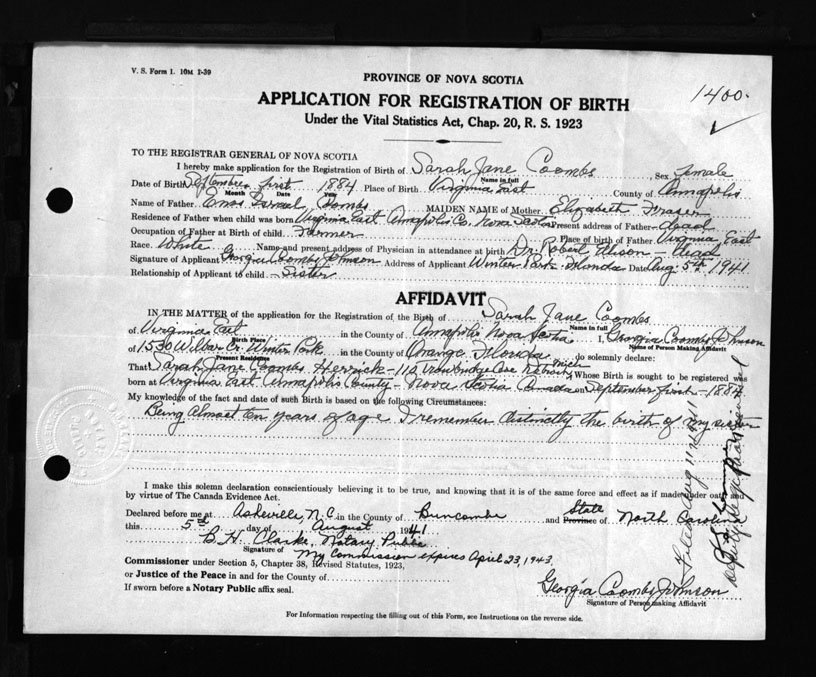 V. S. Form 1. 10M 1-39
PROVINCE OF NOVA SCOTIA
1400.
APPLICATION FOR REGISTRATION OF BIRTH
Under the Vital Statistics Act, Chap. 20, R. S. 1923
TO THE REGISTRAR GENERAL OF NOVA SCOTIA
I hereby make application for the Registration of Birth of Sarah Jane Coombs Sex female
Name in full
Date of Birth September first 1884 Place of Birth Virginia East County of Annapolis
Month Date Year
Name of Father Enos Israel Coombs MAIDEN NAME of Mother Elizabeth Fraser
Residence of Father when child was born Virginia East Annapolis Co. Nova Scotia Present address of Father Dead
Occupation of Father at Birth of child Farmer Place of birth of Father Virginia East
Race White Name and present address of Physician in attendance at birth Dr. Robert Dead
Signature of Applicant Georgia Coombs Johnson Address of Applicant Winter Park Florida Date Aug. 5th 1941
Relationship of Applicant to child Sister
AFFIDAVIT
IN THE MATTER of the application for the Registration of the Birth of Sarah Jane Coombs
Name in full
of Virginia East in the County of Annapolis Nova Scotia I, Georgia Coombs Johnson
Birth Place Name of Person Making Affidavit
of 1530 Winter Park in the County of Orange Florida do solemnly declare:
Present Residence
That Sarah Jane Coombs Herrick - 110 Detroit Mich Whose Birth is sought to be registered was
born at Virginia East Annapolis County - Nova Scotia Canada on September first - 1884
My knowledge of the fact and date of such Birth is based on the following Circumstances:
Being almost ten years of age I remember distinctly the birth of my sister
I make this solemn declaration conscientiously believing it to be true, and knowing that it is of the same force and effect as if made under oath and
by virtue of The Canada Evidence Act.
Declared before me at Asheville, N.C. in the County of Buncombe and Province State of North Carolina
this 5th day of August 1941
B. H. Clarke, Notary Public
Signature of My Commission expires April 23, 1943
Commissioner under Section 5, Chapter 38, Revised Statutes, 1923,
or Justice of the Peace in and for the County of
If sworn before a Notary Public affix seal.
Georgia Coombs Johnson
Signature of Person making Affidavit
For Information respecting the filling out of this Form, see Instructions on the reverse side.